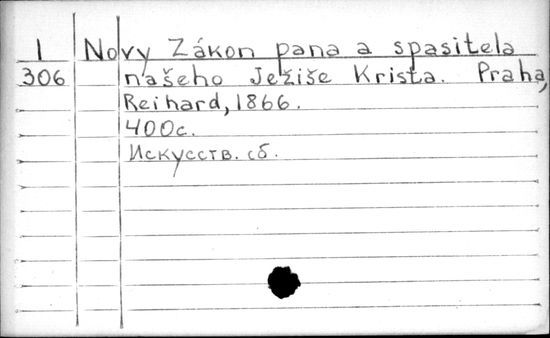 1 Novy Zákon pana a spasitela
306 našeho Ježiše Krista. Praha,
Reihard, 1866.
400c.
Искусств. сб.